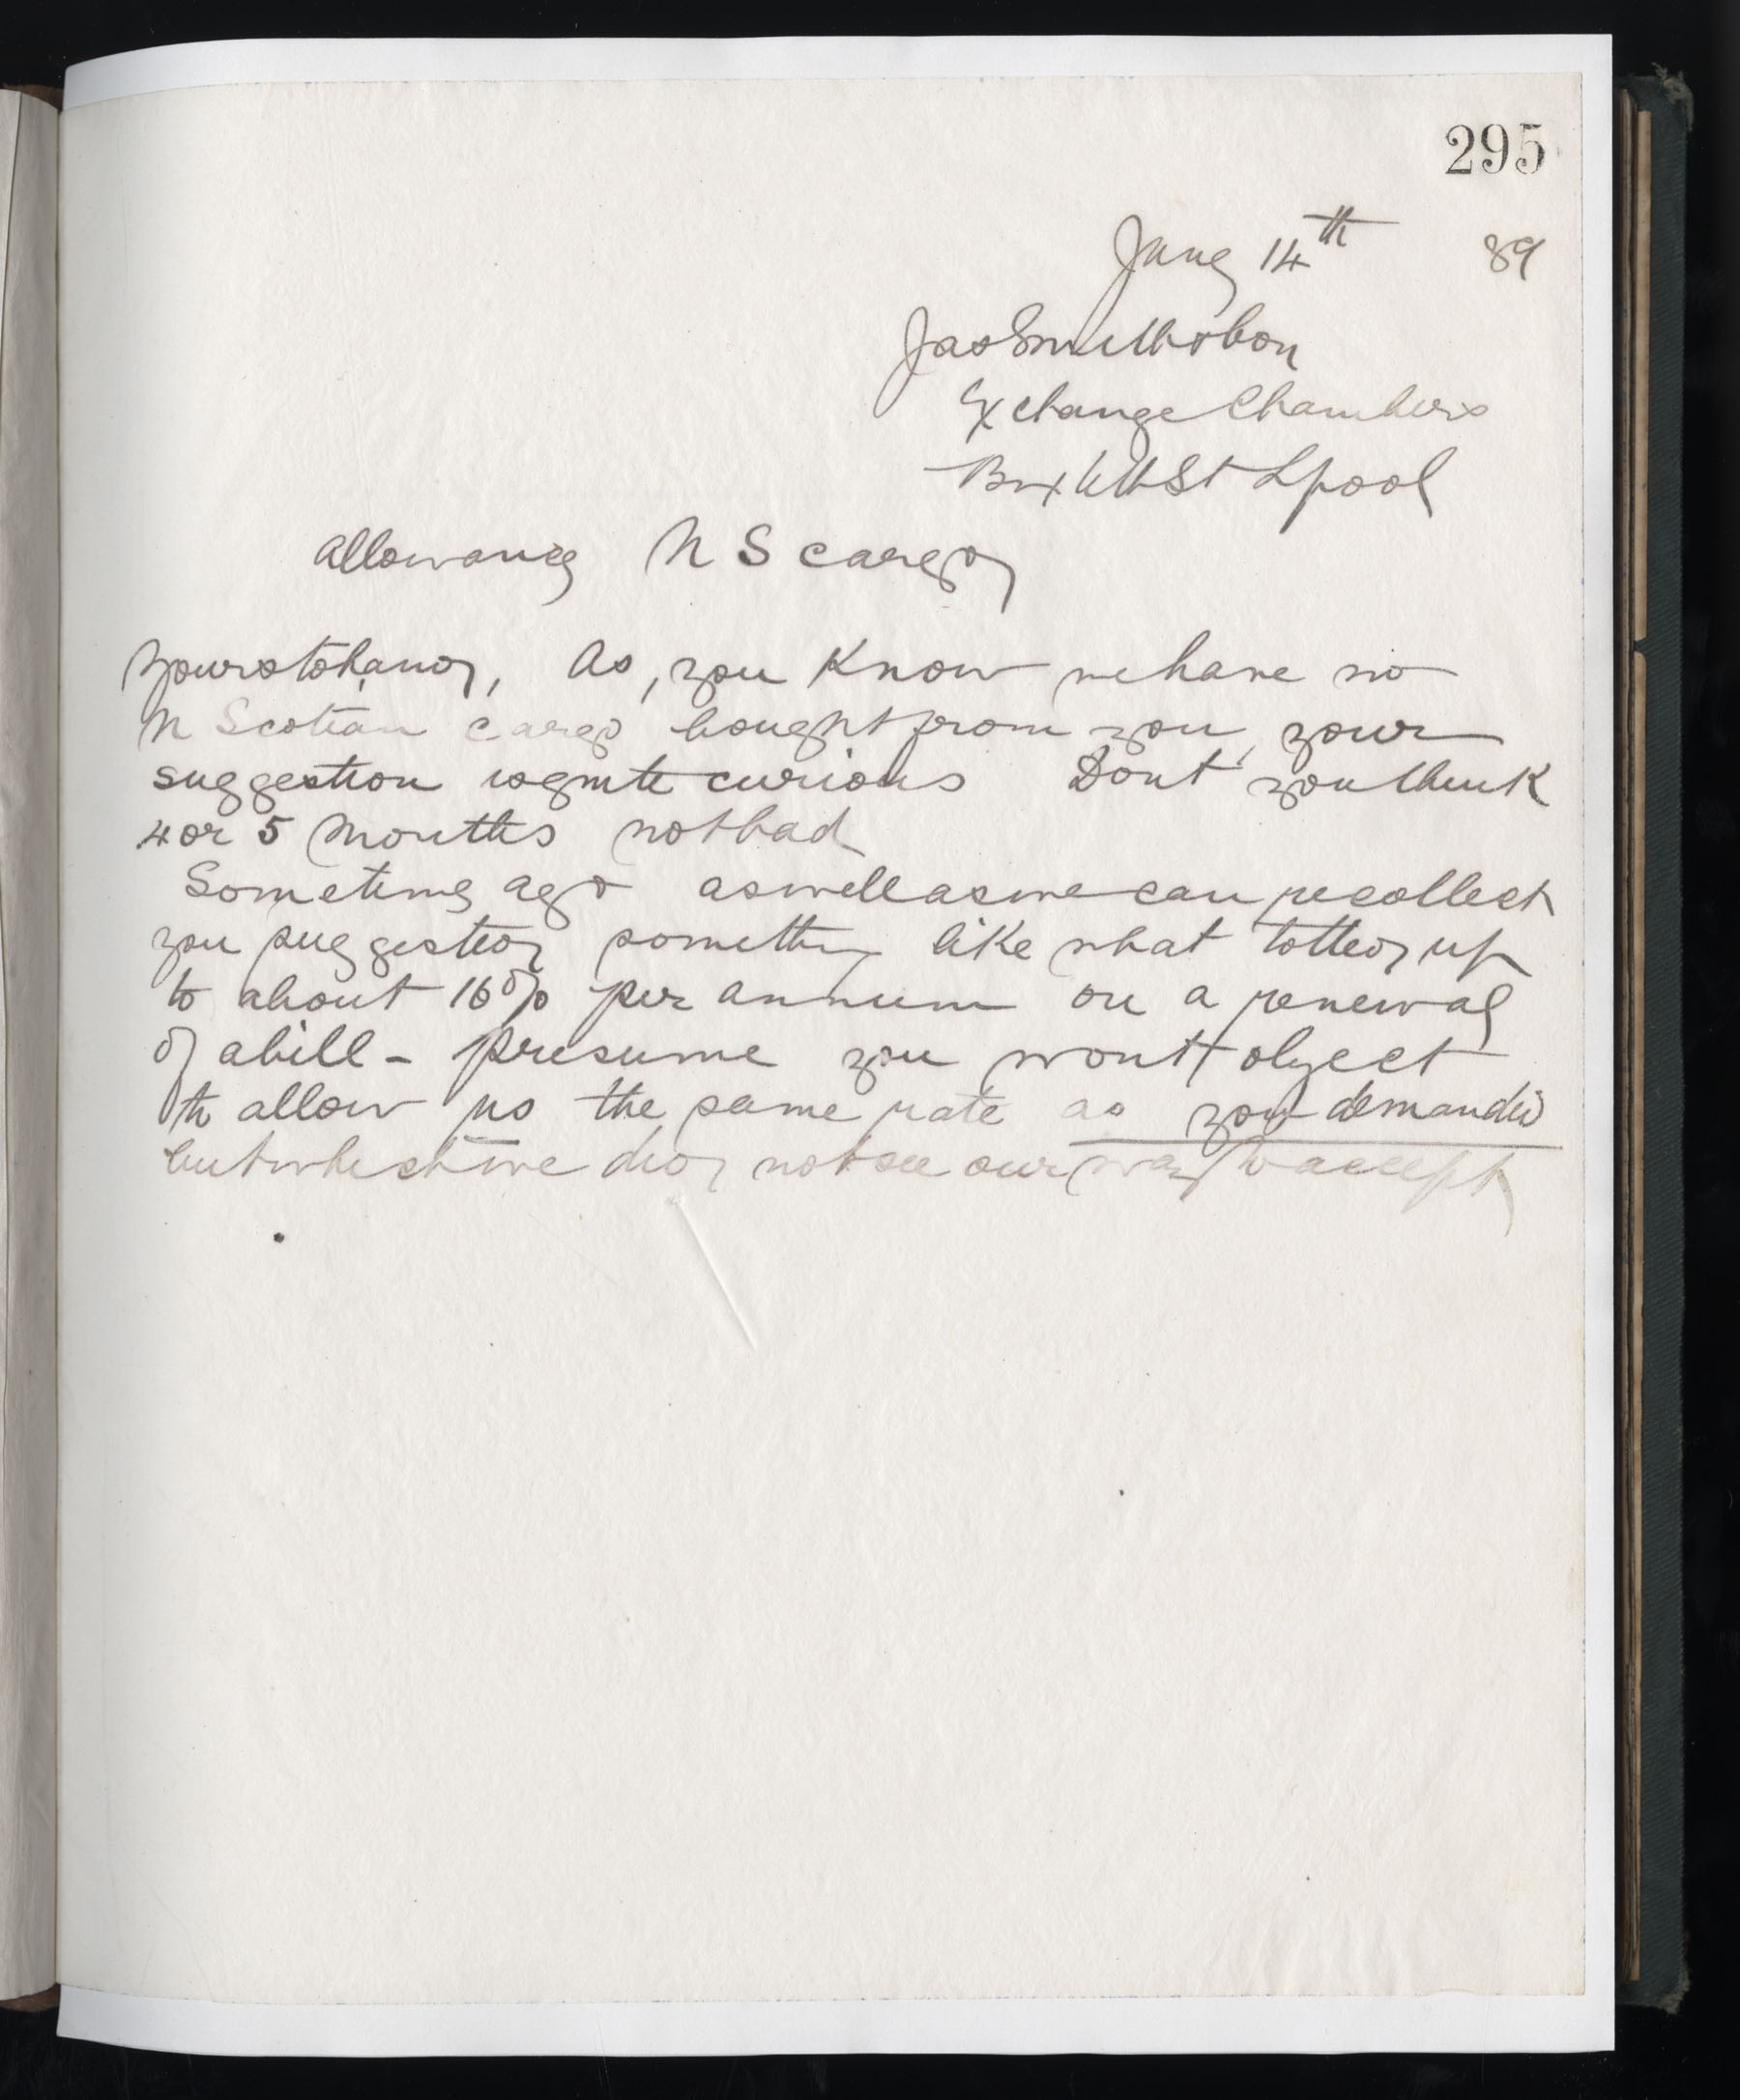 295
Jany 14th 89
Jas Smith & Coy
Exchange Chambers
Bixteth St Lpool
Allowance N S cargo
Yours to hand, As, you know we have no
N Scotian cargo bought from you, your
suggestion is quite curious Dont you think
4 or 5 months not bad
Sometime ago as well as we can recollect
you suggested something like what totted up
to about 16% per annum on a renewal
of a bill - presume you wont object
to allow us the same rate as you demanded
but which we did not see our way to accept